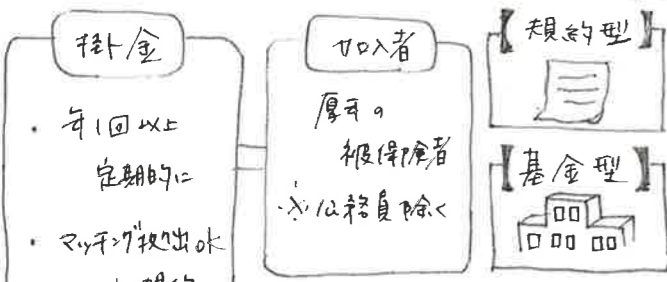 掛金
・年1回以上
定期的に
・マッチング拠出ok
規約
加入者
厚年の
被保険者
※公務員除く
【規約型】
【基金型】